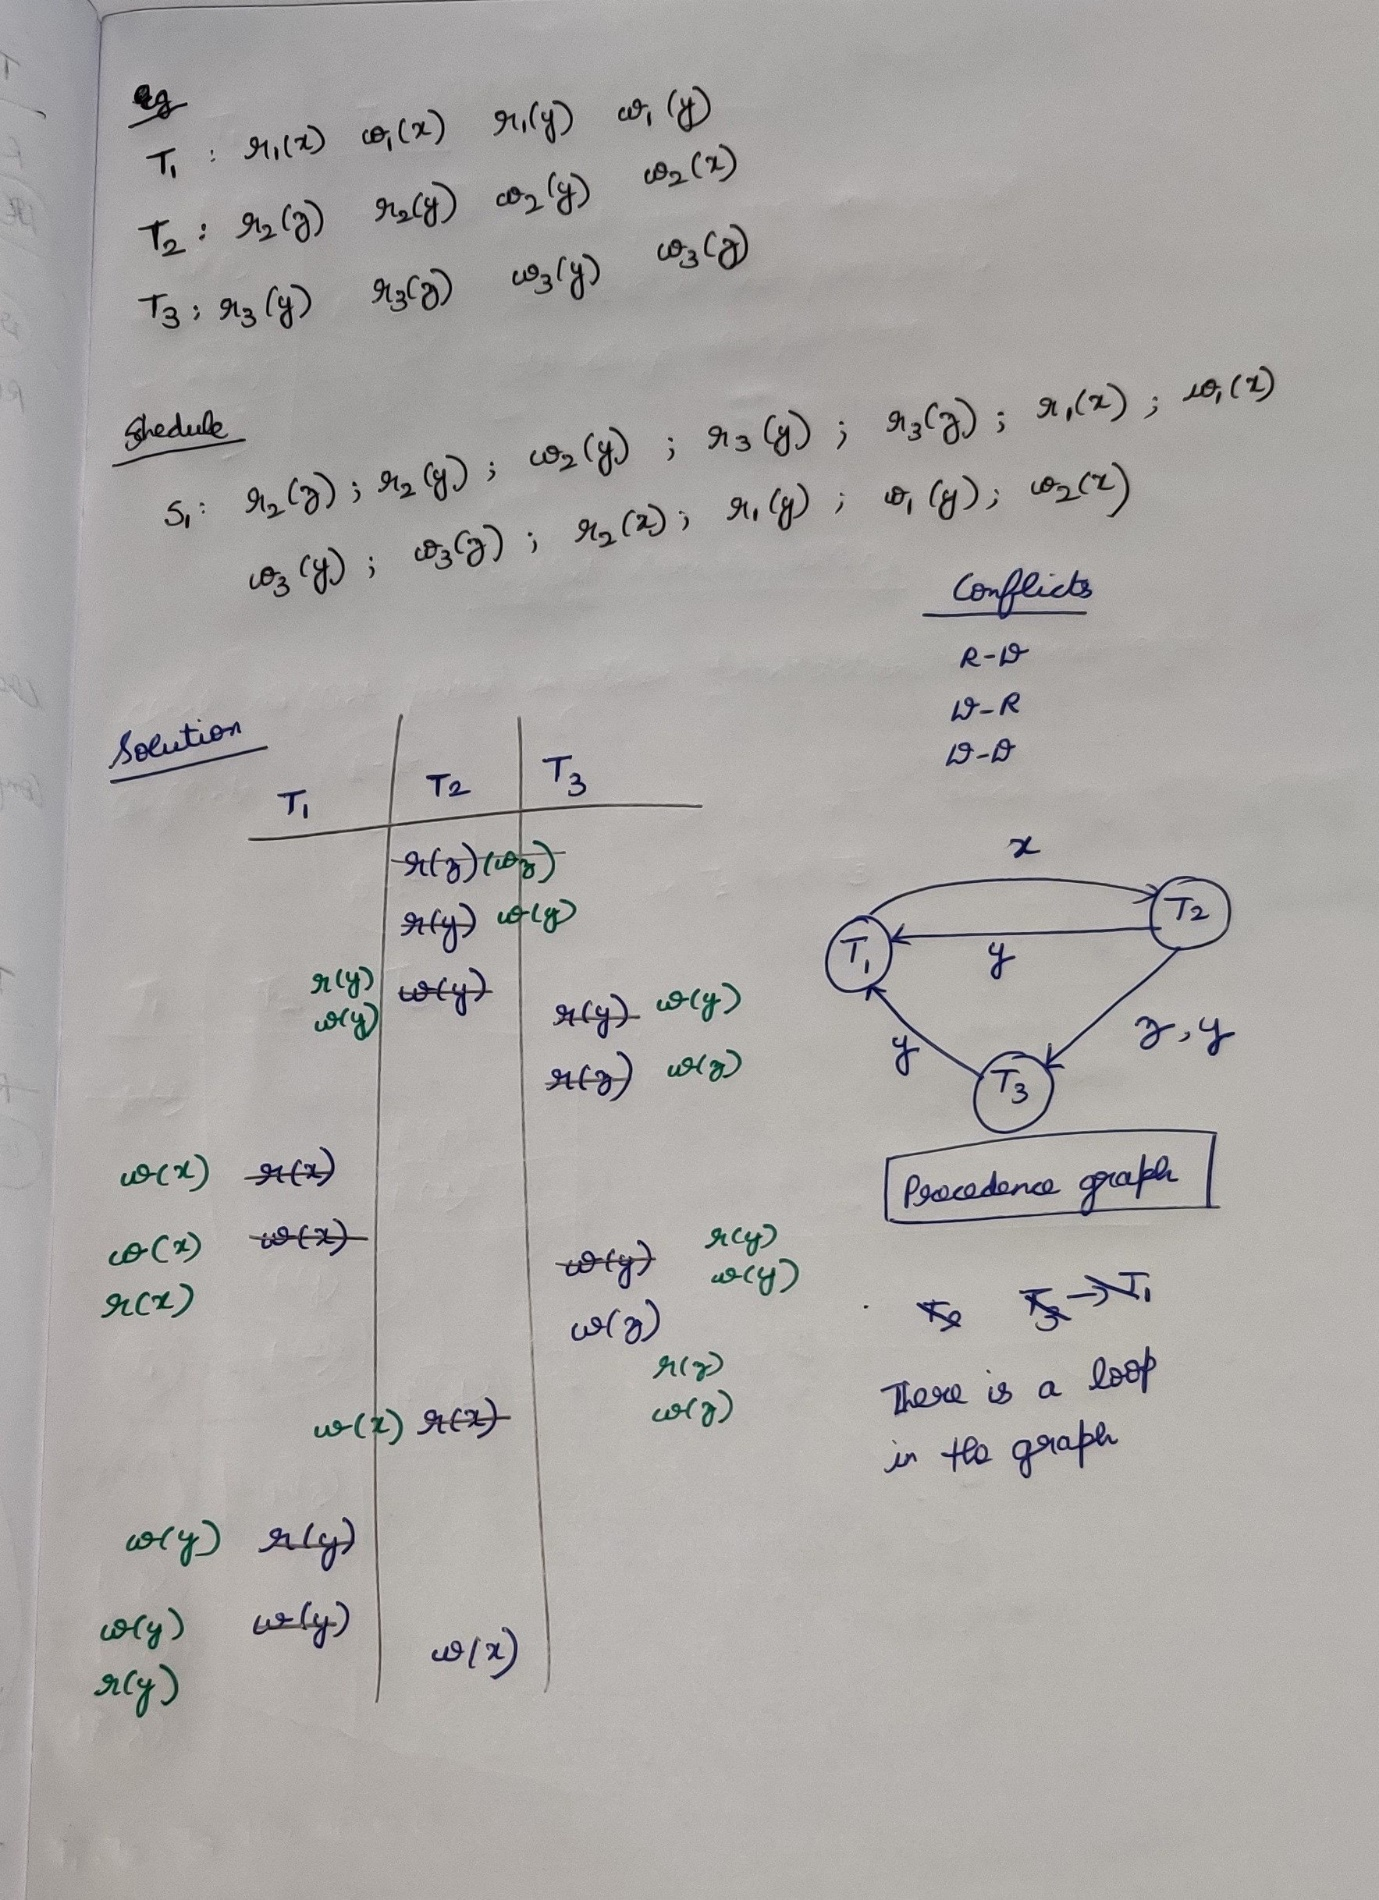 eg
T₁ : r₁(x) w₁(x) r₁(y) w₁(y)
T₂ : r₂(z) r₂(y) w₂(y) w₂(x)
T₃ ; r₃(y) r₃(z) w₃(y) w₃(z)
Shedule
S₁: r₂(z) ; r₂(y) ; w₂(y) ; r₃(y) ; r₃(z) ; r₁(x) ; w₁(x)
w₃(y) ; w₃(z) ; r₂(x) ; r₁(y) ; w₁(y) ; w₂(x)
Conflicts
R-W
W-R
W-W
Solution
T₁ T₂ T₃
r(z) (wz)
r(y) w(y)
r(y) w(y)
w(y) r(y) w(y)
r(z) w(z)
w(x) r(x)
w(x) w(x) w(y) r(y)
r(x) w(y)
w(z)
r(z)
w(x) r(x) w(z)
w(y) r(y)
w(y) w(y)
w(x)
r(y)
x
T₁ T₂
y
y z,y
T₃
Precedence graph
T₂ T₃→T₁
There is a loop
in the graph